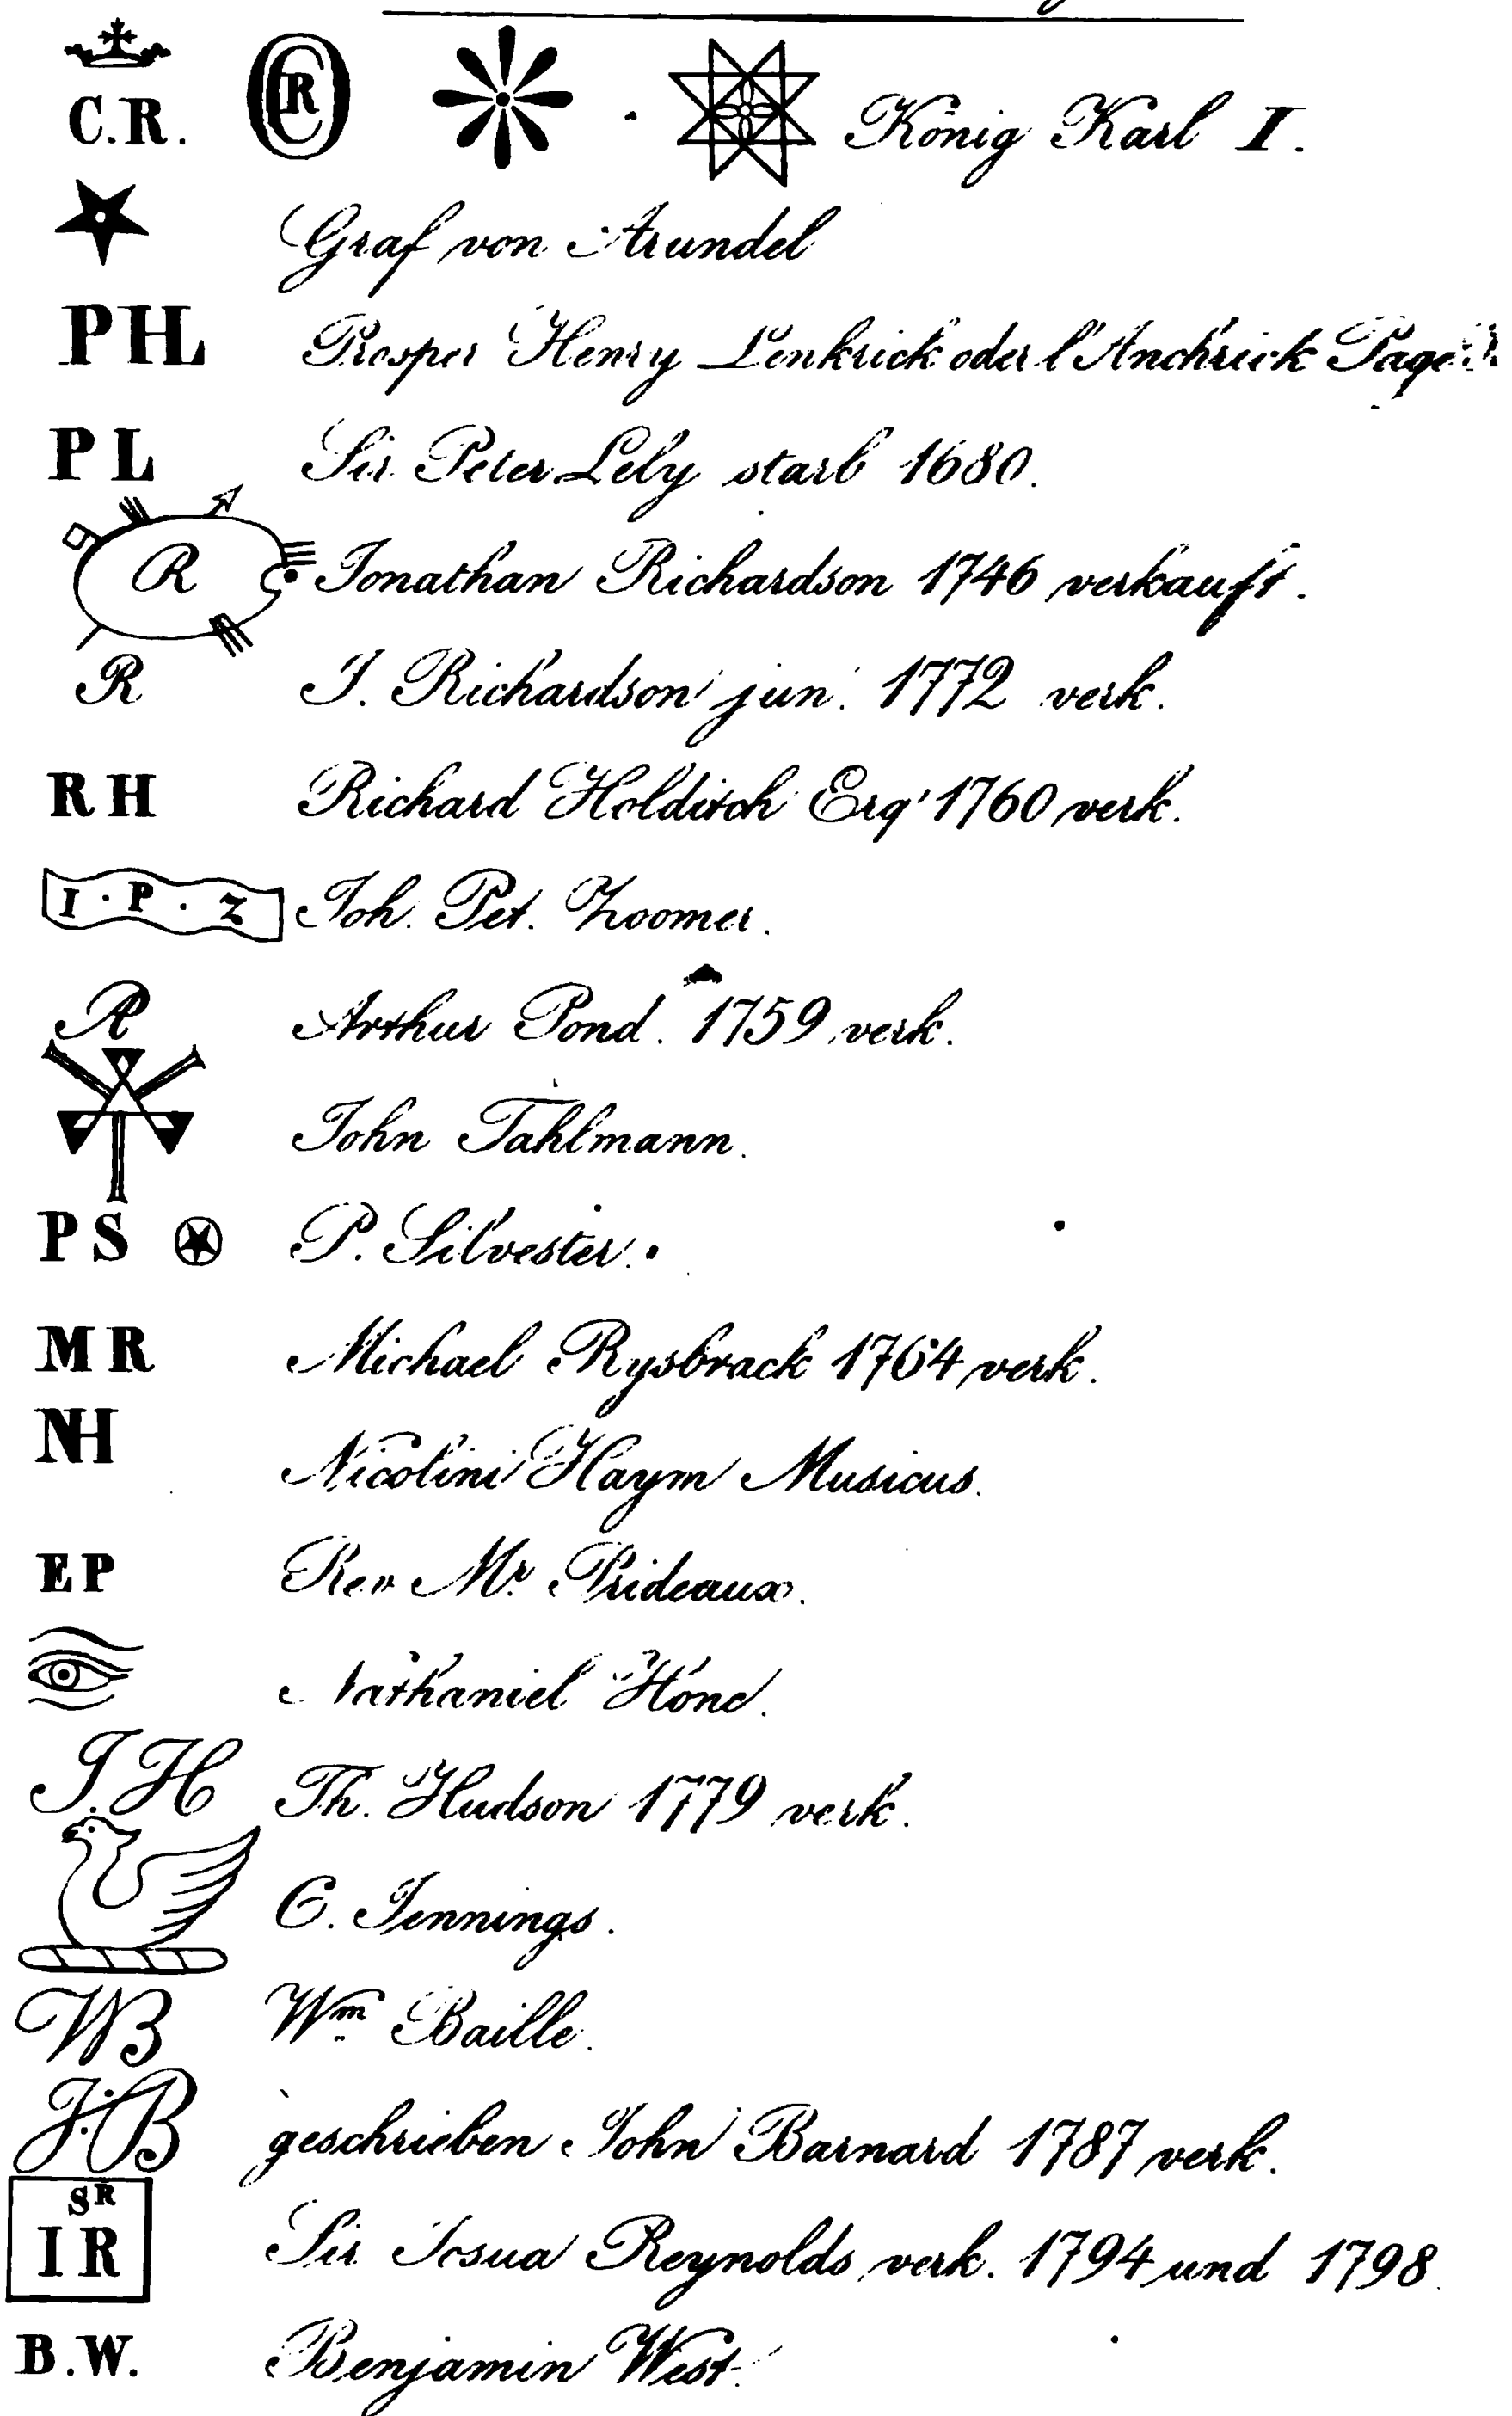 C.R. CR König Karl I.
Graf von Arundel
PHL Prosper Henry Lenkrick oder l'Anchrick Page
PL Sir Peter Lely starb 1680.
R Jonathan Richardson 1746 verkauft.
R J. Richardson jun. 1772 verk.
RH Richard Holditch Esq' 1760 verk.
I.P.Z Joh. Pet. Zoomer.
AP Arthur Pond. 1759 verk.
John Tahlmann.
PS P. Silvester.
MR Michael Rysbrack 1764 verk.
NH Nicolini Haym Musicus.
EP Rev Mr. Prideaux.
Nathaniel Hone.
J.H Th. Hudson 1779 verk.
C. Jennings.
WB Wm Baille.
J:B geschrieben John Barnard 1787 verk.
SR IR Sir Josua Reynolds verk. 1794 und 1798.
B.W. Benjamin West.